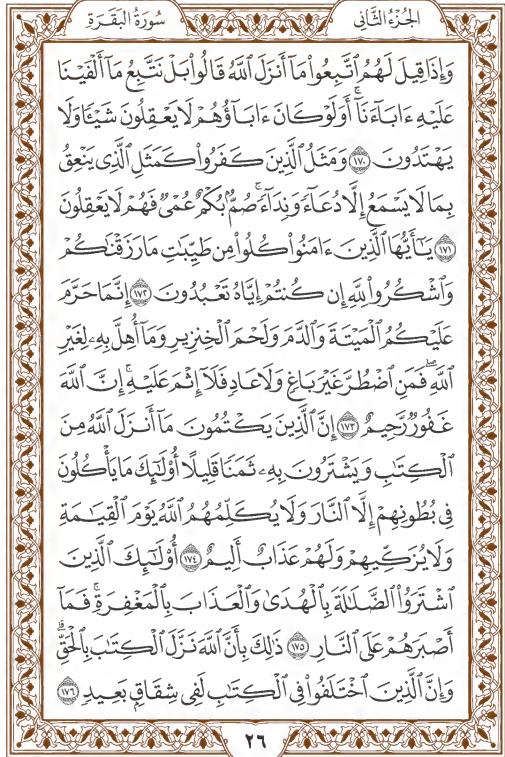 الجزء الثاني
سورة البقرة
وَإِذَا قِيلَ لَهُمُ ٱتَّبِعُوا۟ مَآ أَنزَلَ ٱللَّهُ قَالُوا۟ بَلْ نَتَّبِعُ مَآ أَلْفَيْنَا
عَلَيْهِ ءَابَآءَنَآ ۗ أَوَلَوْ كَانَ ءَابَآؤُهُمْ لَا يَعْقِلُونَ شَيْـًٔا وَلَا
يَهْتَدُونَ ١٧٠ وَمَثَلُ ٱلَّذِينَ كَفَرُوا۟ كَمَثَلِ ٱلَّذِى يَنْعِقُ
بِمَا لَا يَسْمَعُ إِلَّا دُعَآءً وَنِدَآءً ۚ صُمٌّۢ بُكْمٌ عُمْىٌ فَهُمْ لَا يَعْقِلُونَ
١٧١ يَـٰٓأَيُّهَا ٱلَّذِينَ ءَامَنُوا۟ كُلُوا۟ مِن طَيِّبَـٰتِ مَا رَزَقْنَـٰكُمْ
وَٱشْكُرُوا۟ لِلَّهِ إِن كُنتُمْ إِيَّاهُ تَعْبُدُونَ ١٧٢ إِنَّمَا حَرَّمَ
عَلَيْكُمُ ٱلْمَيْتَةَ وَٱلدَّمَ وَلَحْمَ ٱلْخِنزِيرِ وَمَآ أُهِلَّ بِهِۦ لِغَيْرِ
ٱللَّهِ ۖ فَمَنِ ٱضْطُرَّ غَيْرَ بَاغٍ وَلَا عَادٍ فَلَآ إِثْمَ عَلَيْهِ ۚ إِنَّ ٱللَّهَ
غَفُورٌ رَّحِيمٌ ١٧٣ إِنَّ ٱلَّذِينَ يَكْتُمُونَ مَآ أَنزَلَ ٱللَّهُ مِنَ
ٱلْكِتَـٰبِ وَيَشْتَرُونَ بِهِۦ ثَمَنًا قَلِيلًا ۙ أُو۟لَـٰٓئِكَ مَا يَأْكُلُونَ
فِى بُطُونِهِمْ إِلَّا ٱلنَّارَ وَلَا يُكَلِّمُهُمُ ٱللَّهُ يَوْمَ ٱلْقِيَـٰمَةِ
وَلَا يُزَكِّيهِمْ وَلَهُمْ عَذَابٌ أَلِيمٌ ١٧٤ أُو۟لَـٰٓئِكَ ٱلَّذِينَ
ٱشْتَرَوُا۟ ٱلضَّلَـٰلَةَ بِٱلْهُدَىٰ وَٱلْعَذَابَ بِٱلْمَغْفِرَةِ ۚ فَمَآ
أَصْبَرَهُمْ عَلَى ٱلنَّارِ ١٧٥ ذَٰلِكَ بِأَنَّ ٱللَّهَ نَزَّلَ ٱلْكِتَـٰبَ بِٱلْحَقِّ ۗ
وَإِنَّ ٱلَّذِينَ ٱخْتَلَفُوا۟ فِى ٱلْكِتَـٰبِ لَفِى شِقَاقٍۭ بَعِيدٍ ١٧٦
٢٦